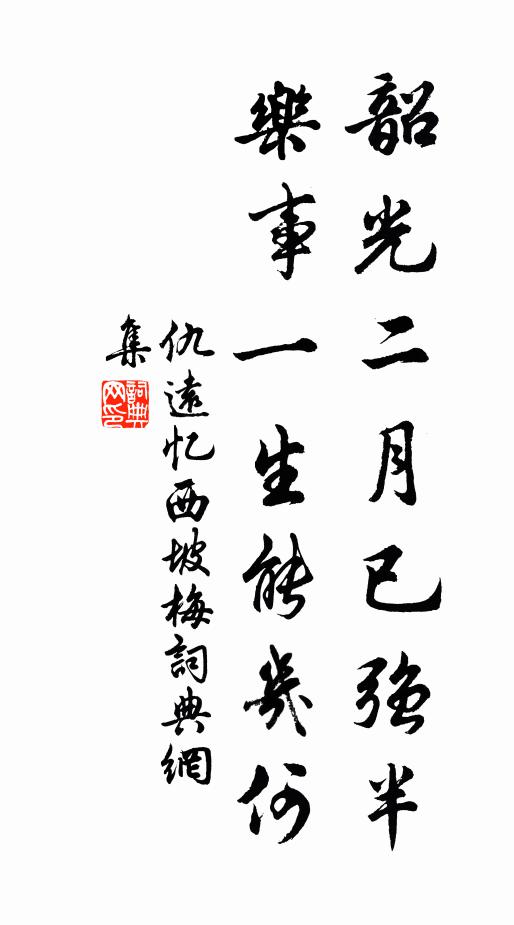 韶光二月已強半
樂事一生能幾何
仇遠忆西坡梅詞典網
集
詞典网印